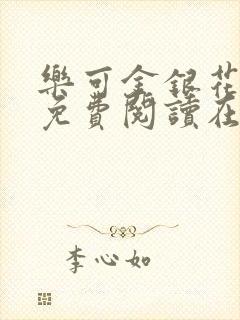 樂可金銀花
免費閱讀在
李心如